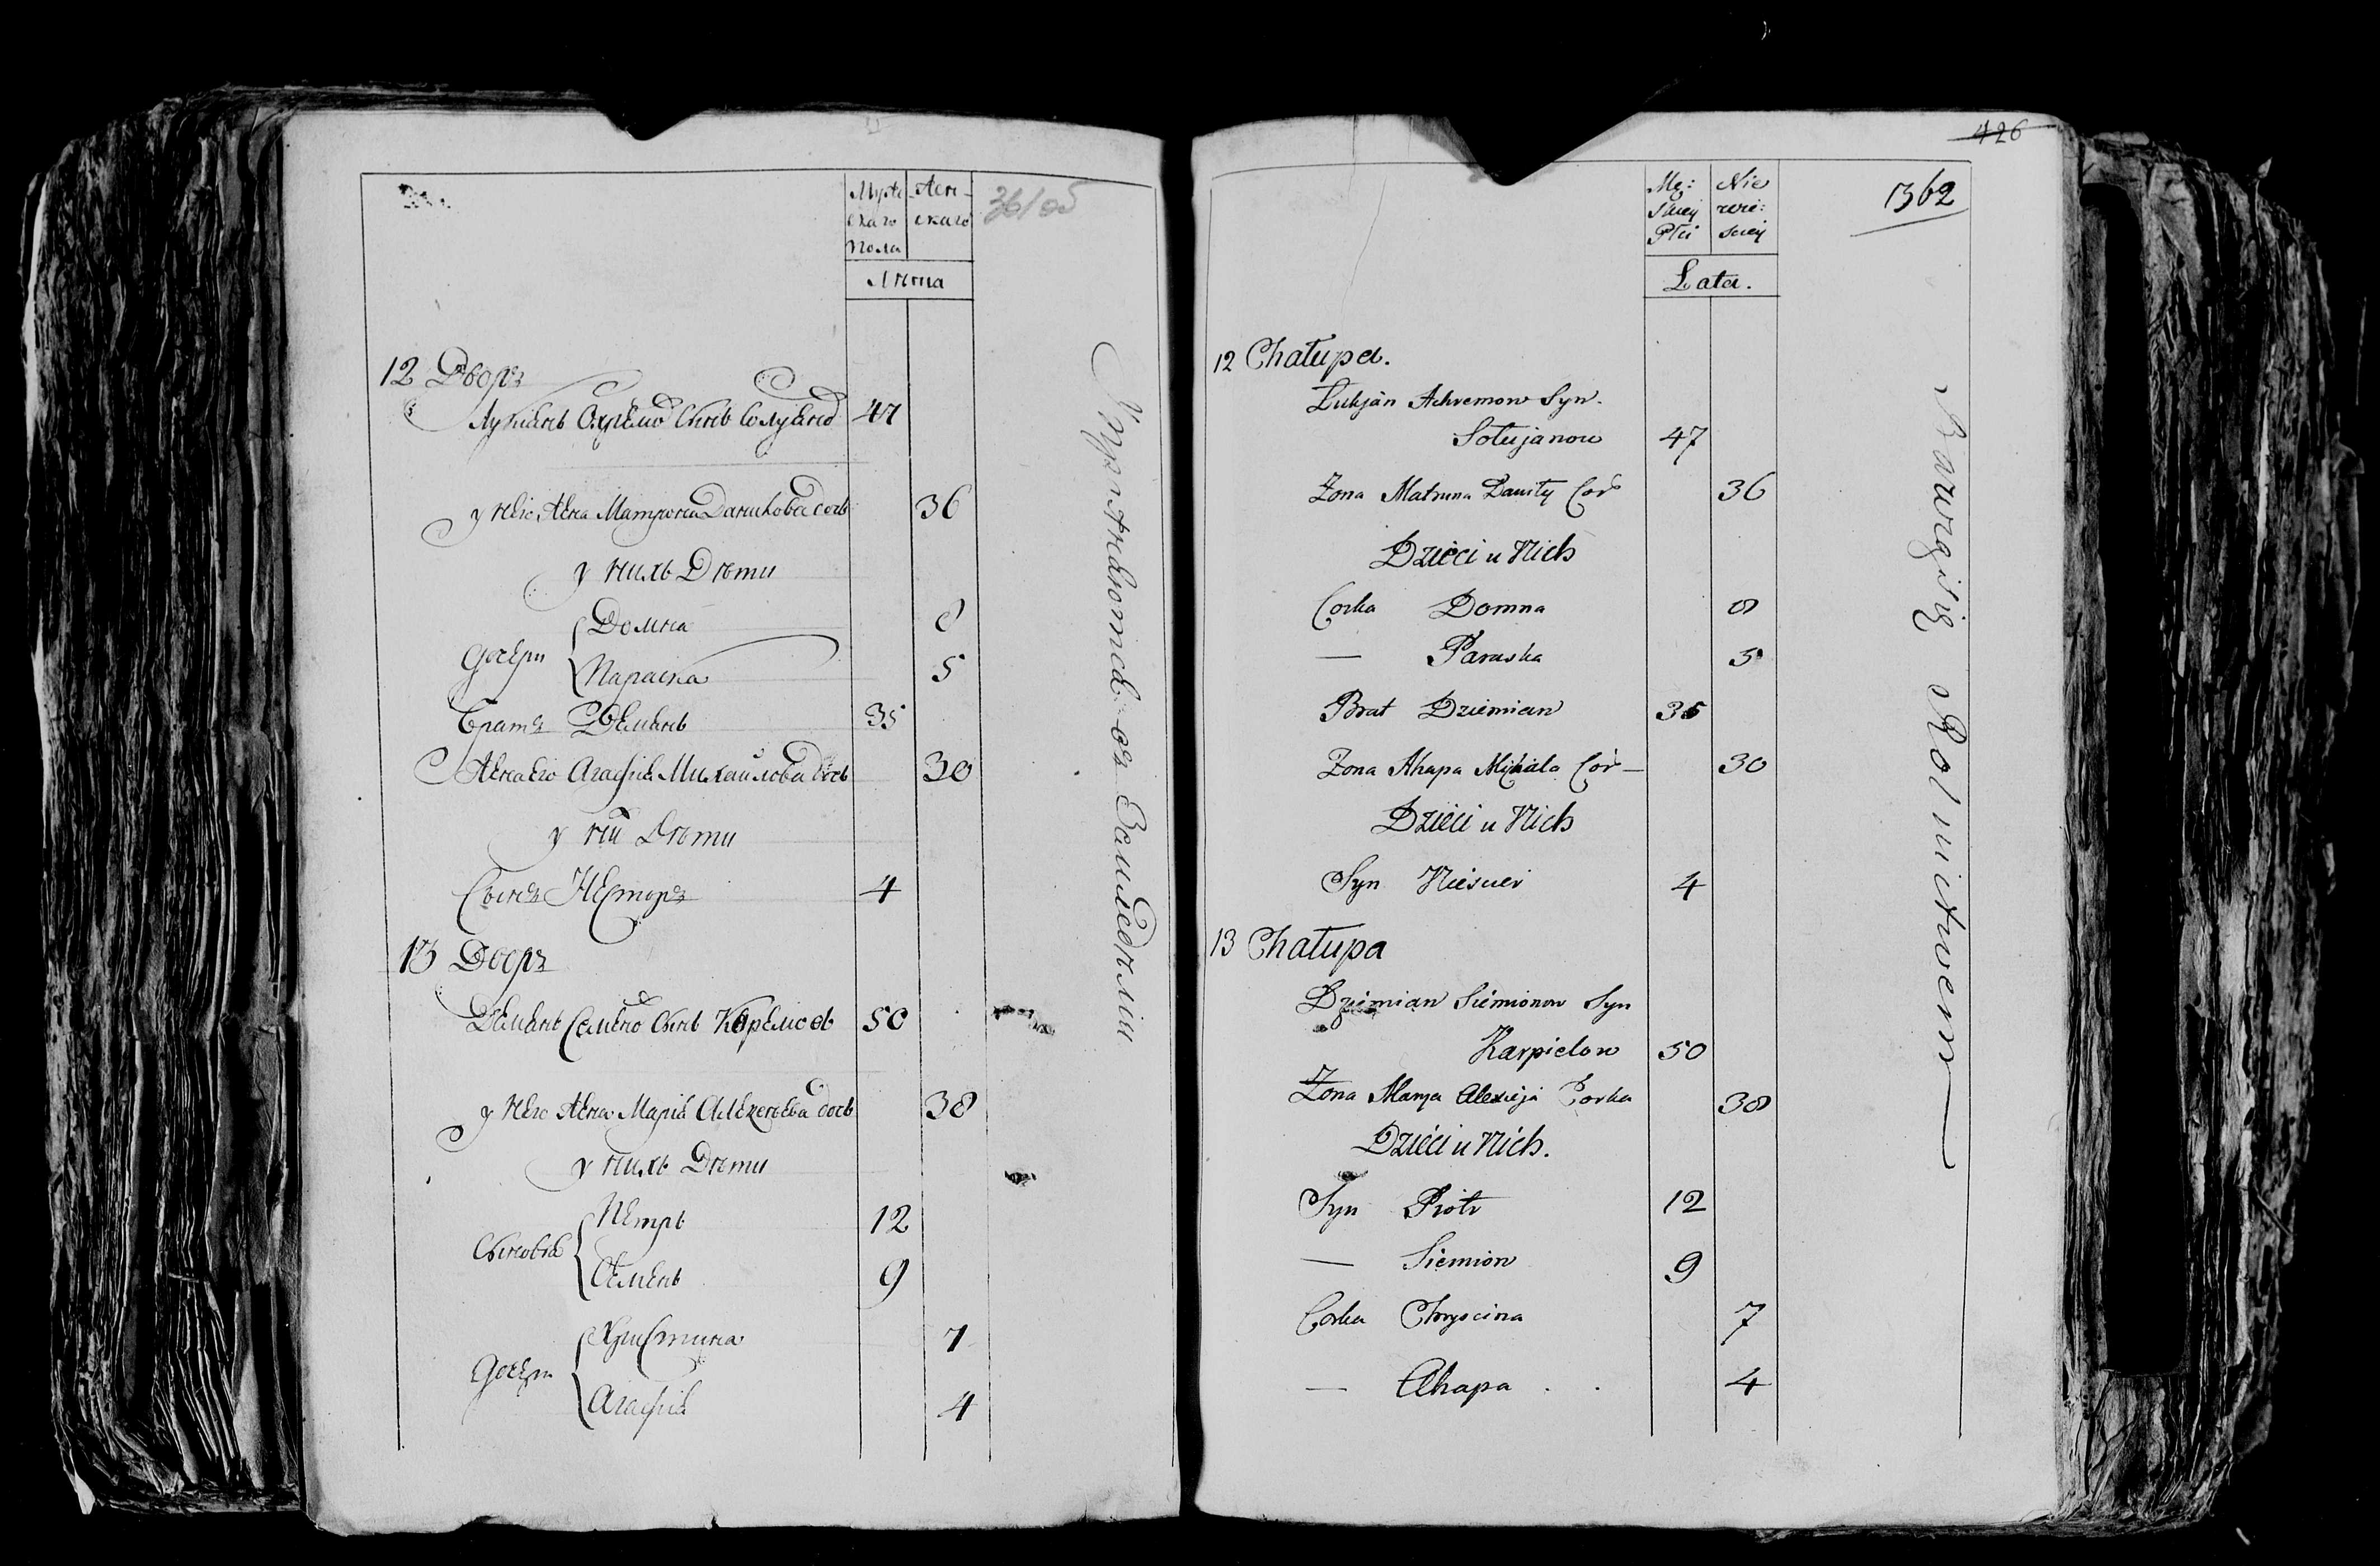 Муже
скаго
пола
Жен-
скаго
36/об
Лѣта
12 Дворъ
Лукиянъ Охремо Сынъ Солуяно 47
у него Жена Матрона Данилова дочь 36
у нихъ Дѣти
Дочери
Домна 8
Параска 5
Братъ Демьянъ 35
Жена его Агафия Михайлова дочь 30
у ней Дѣти
Сынъ Несторъ 4
13 Дворъ
Демьянъ Семено Сынъ 50
у него Жена Мария Алексеева дочь 38
у нихъ Дѣти
Сыновья
Петръ 12
Семенъ 9
Дочери
Христина 7
Агафия 4
Упражняются въ Земледѣлии
426
1362
Mę:
skiey
Płci
Nie
wie:
sciey
Lata.
12 Chałupa.
Łukjan Achremow Syn.
Sołujanow 47
Żona Matruna Daniły Cór 36
Dzieci u Nich
Corka Domna 8
— Paraska 5
Brat Dziemian 35
Żona Ahapa Michała Cór— 30
Dzieci u Nich
Syn 4
13 Chałupa
Dziemian Siemionow Syn
Karpielow 50
Żona Marya Alexieja Corka 38
Dzieci u Nich.
Syn Piotr 12
— Siemion 9
Corka Chryscina 7
— Ahapa . . 4
Bawią się Rolnictwem—